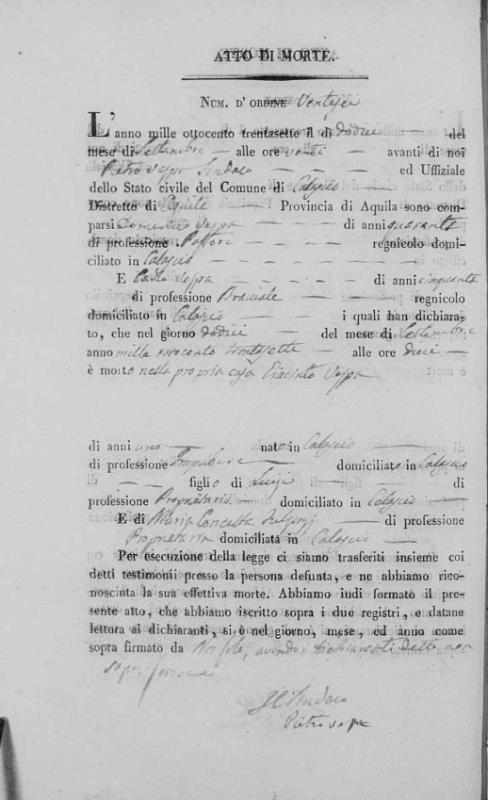 ATTO DI MORTE.
NUM. D' ORDINE Ventisei
L'anno mille ottocento trentasette il dì dodici del
mese di Settembre alle ore venti avanti di noi
Pietro Vespa Sindaco ed Uffiziale
dello Stato civile del Comune di Calascio
Distretto di Aquila Provincia di Aquila sono com-
parsi Domenico Vespa di anni quaranta
di professione Pastore regnicolo domi-
ciliato in Calascio
E Vespa di anni cinquanta
di professione Bracciale regnicolo
domiciliato in Calascio i quali han dichiara-
to, che nel giorno dodici del mese di Settembre
anno mille ottocento trentasette alle ore dieci
è morto nella propria casa Giacinto Vespa
di anni uno nato in Calascio
di professione Impubere domiciliato in Calascio
di figlio di Luigi di
professione Proprietario domiciliato in Calascio
E di Maria Concetta di professione
Proprietaria domiciliata in Calascio
Per esecuzione della legge ci siamo trasferiti insieme coi
detti testimonii presso la persona defunta, e ne abbiamo rico-
nosciuta la sua effettiva morte. Abbiamo indi formato il pre-
sente atto, che abbiamo iscritto sopra i due registri, e datane
lettura ai dichiaranti, si è nel giorno, mese, ed anno come
sopra firmato da Noi solo, avendo i dichiaranti detto non
saper scrivere
Il Sindaco
Pietro Vespa